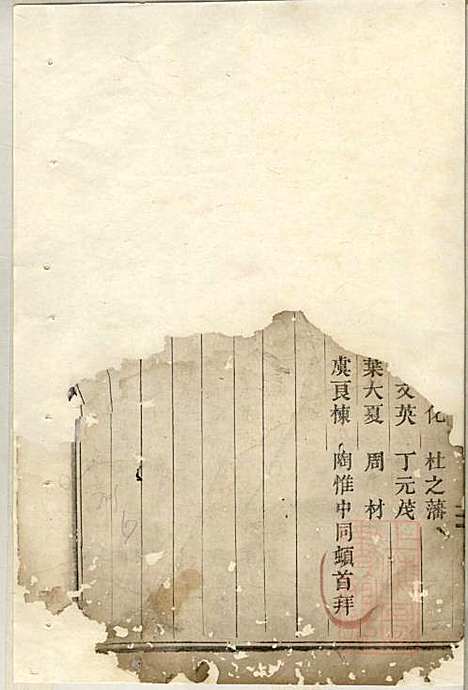 化 杜之藩
文英 丁元茂
葉大夏 周材
虞良棟 陶惟中同頓首拜